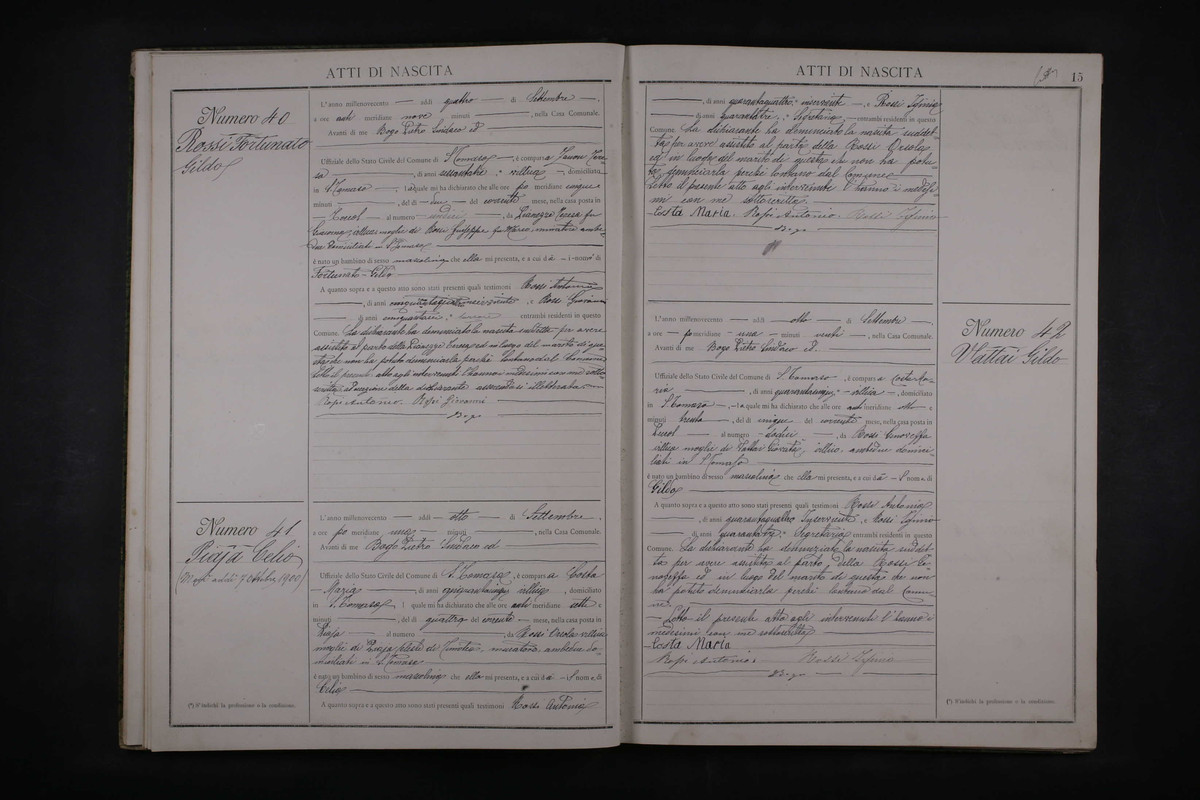 ATTI DI NASCITA
Numero 40
Rossi Fortunato
Gildo
L'anno millenovecento — addì quattro — di Settembre —,
a ore anti meridiane nove minuti —, nella Casa Comunale.
Avanti di me Bogo Pietro Sindaco ed
Ufficiale dello Stato Civile del Comune di S. Tomaso —, è comparsa
—, di anni sessantatre, villica —, domiciliata
in S. Tomaso —, la quale mi ha dichiarato che alle ore po meridiane cinque e
minuti —, del dì due — del corrente mese, nella casa posta in
— al numero undici —, da Pianezze Teresa fu
villica moglie di Rossi Giuseppe fu Marco, muratore ambe-
due domiciliati in S. Tomaso
è nato un bambino di sesso mascolino che ella mi presenta, e a cui dà i nomi di
Fortunato - Gildo
A quanto sopra e a questo atto sono stati presenti quali testimoni Rossi Antonio
—, di anni inserviente e Rossi Giovanni
entrambi residenti in questo
Comune. La dichiarante ha denunciato la nascita suddetta per avere
assistito al parto della Pianezze Teresa ed in luogo del marito di que-
sta che non ha potuto denunciarla perchè lontano dal Comune
Letto il presente atto agli intervenuti l'hanno i medesimi con me sotto-
scritto, ad eccezione della dichiarante
Rossi Antonio. Rossi Giovanni
Bogo
Numero 41
Piaja Celio
L'anno millenovecento — addì otto — di Settembre —,
a ore po meridiane una — minuti —, nella Casa Comunale.
Avanti di me Bogo Pietro Sindaco ed
Ufficiale dello Stato Civile del Comune di S. Tomaso, è comparsa Costa
Maria —, di anni villica, domiciliata
in S. Tomaso, la quale mi ha dichiarato che alle ore anti meridiane sette e
minuti —, del dì quattro del corrente — mese, nella casa posta in
Piaja — al numero —, da Rossi Orsola villica
moglie di Piaja di muratore, ambedue do-
miciliati in S. Tomaso
è nato un bambino di sesso mascolino che ella mi presenta, e a cui dà il nome di
Celio
A quanto sopra e a questo atto sono stati presenti quali testimoni Rossi Antonio
(*) S'indichi la professione o la condizione.
ATTI DI NASCITA
15
—, di anni quarantaquattro, inserviente —, e Rossi Ifginio
— di anni quarantatre, Segretario — entrambi residenti in questo
Comune. La dichiarante ha denunciato la nascita suddet-
ta per avere assistito al parto della Rossi Orsola
ed in luogo del marito di questa che non ha potu-
to denunciarla perchè lontano dal Comune
Letto il presente atto agli intervenuti l'hanno i medesi-
mi con me sottoscritto
Costa Maria. Rossi Antonio. Rossi Ifginio
Bogo
Numero 42
Mattai Gildo
L'anno millenovecento — addì otto — di Settembre —,
a ore po meridiane — una — minuti venti —, nella Casa Comunale.
Avanti di me Bogo Pietro Sindaco ed
Ufficiale dello Stato Civile del Comune di S. Tomaso, è comparsa Costa Ma-
ria —, di anni villica, domiciliata
in S. Tomaso —, la quale mi ha dichiarato che alle ore anti meridiane otto e
minuti trenta —, del dì cinque del corrente mese, nella casa posta in
— al numero dodici —, da Rossi Genoveffa
villica moglie di villico, ambedue domici-
liati in S. Tomaso
è nato un bambino di sesso mascolino che ella mi presenta, e a cui dà il nome di
Gildo
A quanto sopra e a questo atto sono stati presenti quali testimoni Rossi Antonio
—, di anni quarantaquattro Inserviente e Rossi Ifginio
—, di anni quarantatre, Segretario entrambi residenti in questo
Comune. La dichiarante ha denunziato la nascita suddet-
ta per avere assistito al parto della Rossi Ge-
noveffa ed in luogo del marito di questa che non
ha potuto denunciarla perchè lontano dal Comu-
ne.
Letto il presente atto agli intervenuti l'hanno i
medesimi con me sottoscritto
Costa Maria
Rossi Antonio. Rossi Ifginio
Bogo
(*) S'indichi la professione o la condizione.